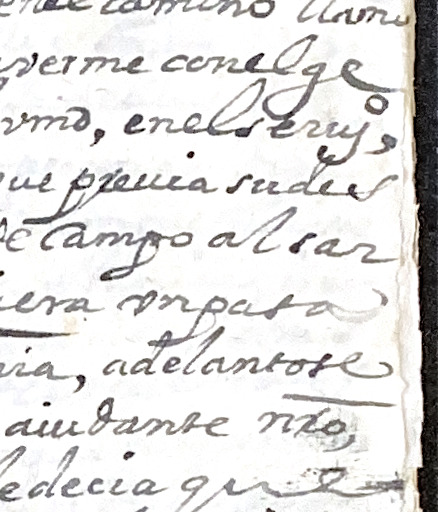 en el camino llamo
verme con el ge
vmd, en el serui.º
que preuia su des
de campo al sar
iera vn pasa
ria, adelantose
aiudante nro,
le decia que